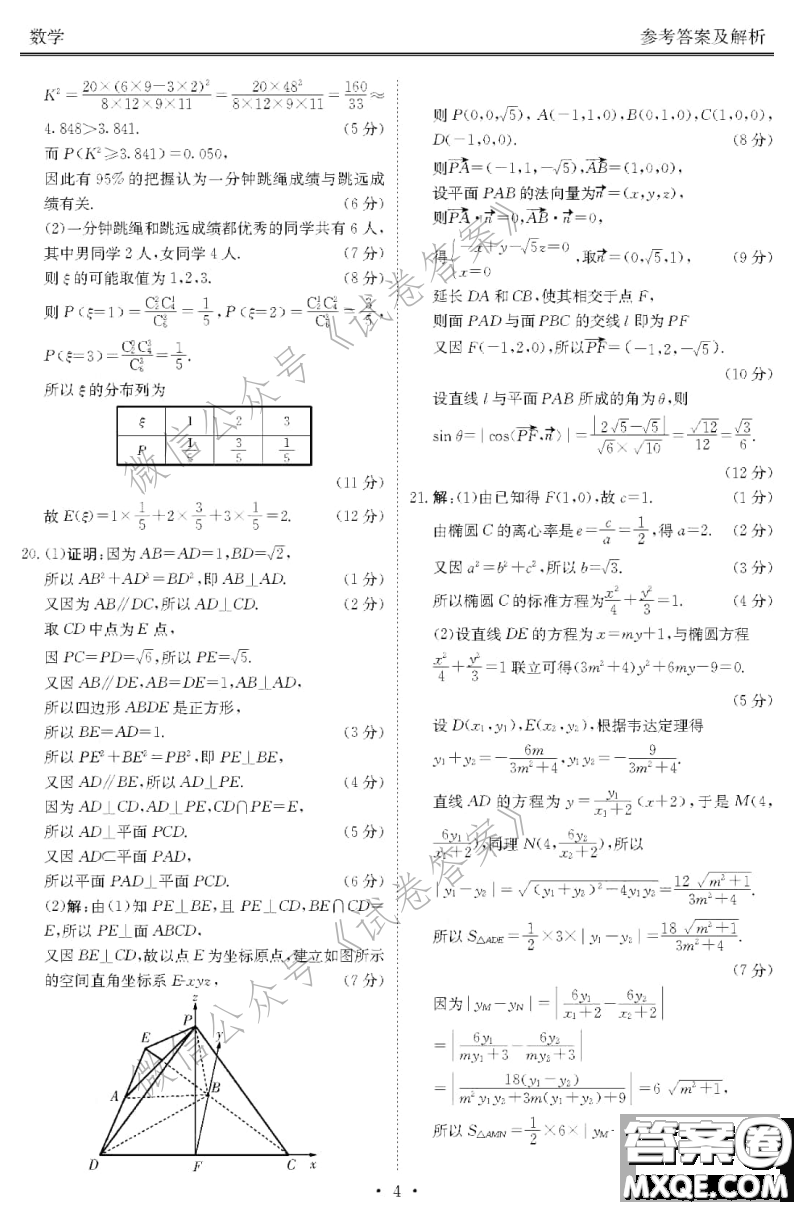 数学
参考答案及解析
K²=20×(6×9-3×2)²/8×12×9×11=20×48²/8×12×9×11=160/33≈
4.848>3.841. (5分)
而P(K²≥3.841)=0.050,
因此有95%的把握认为一分钟跳绳成绩与跳远成
绩有关. (6分)
(2)一分钟跳绳和跳远成绩都优秀的同学共有6人,
其中男同学2人,女同学4人. (7分)
则ξ的可能取值为1,2,3. (8分)
则P(ξ=1)=C₂²C₄¹/C₆³=1/5,P(ξ=2)=C₂¹C₄²/C₆³=3/5,
P(ξ=3)=C₂⁰C₄³/C₆³=1/5.
所以ξ的分布列为
ξ 1 2 3
P 1/5 3/5 1/5
(11分)
故E(ξ)=1×1/5+2×3/5+3×1/5=2. (12分)
20.(1)证明:因为AB=AD=1,BD=√2,
所以AB²+AD²=BD²,即AB⊥AD. (1分)
又因为AB∥DC,所以AD⊥CD. (2分)
取CD中点为E点,
因PC=PD=√6,所以PE=√5.
又因AB∥DE,AB=DE=1,AB⊥AD,
所以四边形ABDE是正方形,
所以BE=AD=1. (3分)
所以PE²+BE²=PB²,即PE⊥BE,
又因AD∥BE,所以AD⊥PE. (4分)
因为AD⊥CD,AD⊥PE,CD∩PE=E,
所以AD⊥平面PCD. (5分)
又因AD⊂平面PAD,
所以平面PAD⊥平面PCD. (6分)
(2)解:由(1)知PE⊥BE,且PE⊥CD,BE∩CD=
E,所以PE⊥面ABCD,
又因BE⊥CD,故以点E为坐标原点,建立如图所示
的空间直角坐标系E-xyz, (7分)
z
P
y
E
A
B
D
F
C
x
则P(0,0,√5),A(-1,1,0),B(0,1,0),C(1,0,0),
D(-1,0,0). (8分)
则PA→=(-1,1,-√5),AB→=(1,0,0),
设平面PAB的法向量为n→=(x,y,z),
则PA→·n→=0,AB→·n→=0,
得{-x+y-√5z=0
x=0
,取n→=(0,√5,1), (9分)
延长DA和CB,使其相交于点F,
则面PAD与面PBC的交线l即为PF
又因F(-1,2,0),所以PF→=(-1,2,-√5).
(10分)
设直线l与平面PAB所成的角为θ,则
sin θ=|cos⟨PF→,n→⟩|=|2√5-√5|/√6×√10=√12/12=√3/6.
(12分)
21.解:(1)由已知得F(1,0),故c=1. (1分)
由椭圆C的离心率是e=c/a=1/2,得a=2. (2分)
又因a²=b²+c²,所以b=√3. (3分)
所以椭圆C的标准方程为x²/4+y²/3=1. (4分)
(2)设直线DE的方程为x=my+1,与椭圆方程
x²/4+y²/3=1联立可得(3m²+4)y²+6my-9=0.
(5分)
设D(x₁,y₁),E(x₂,y₂),根据韦达定理得
y₁+y₂=-6m/3m²+4,y₁y₂=-9/3m²+4.
直线AD的方程为y=y₁/x₁+2(x+2),于是M(4,
6y₁/x₁+2),同理N(4,6y₂/x₂+2),所以
|y₁-y₂|=√(y₁+y₂)²-4y₁y₂=12√m²+1/3m²+4.
所以S△ADE=1/2×3×|y₁-y₂|=18√m²+1/3m²+4.
(7分)
因为|yM-yN|=|6y₁/x₁+2-6y₂/x₂+2|
=|6y₁/my₁+3-6y₂/my₂+3|
=|18(y₁-y₂)/m²y₁y₂+3m(y₁+y₂)+9|=6√m²+1,
所以S△AMN=1/2×6×|yM-
·4·
微信公众号《试卷答案》
微信公众号《试卷答案》
答案卷
MXQE.COM